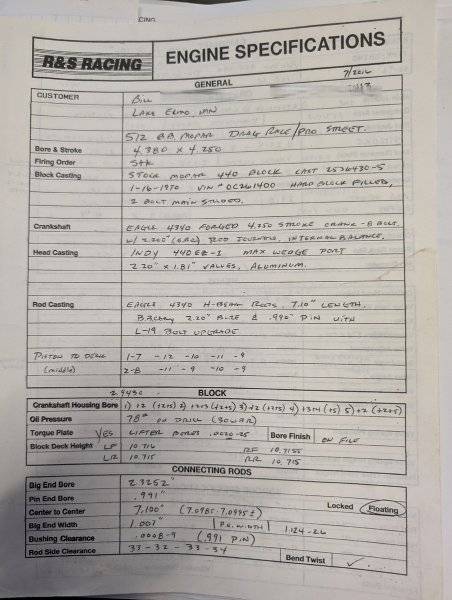 R&S RACING
ENGINE SPECIFICATIONS
7/2016
GENERAL
CUSTOMER Bill
LAKE ELMO, MN
512 B.B. MOPAR DRAG RACE/PRO STREET.
Bore & Stroke 4.380 x 4.250
Firing Order STK
Block Casting STOCK MOPAR 440 BLOCK CAST 2536430-5
1-16-1970 VIN# 0C261400 HARD BLOCK FILLED,
2 BOLT MAIN STUDDED.
Crankshaft EAGLE 4340 FORGED 4.250 STROKE CRANK - 8 BOLT
W/ 2.200" (B.B.C) ROD JOURNALS, INTERNAL BALANCE.
Head Casting INDY 440EZ-1 MAX WEDGE PORT
2.20" x 1.81" VALVES, ALUMINUM.
Rod Casting EAGLE 4340 H-BEAM RODS, 7.10" LENGTH.
B.B.Chevy 2.20" BORE & .990" PIN WITH
L-19 BOLT UPGRADE
PISTON TO DECK 1-7 -12 -10 -11 -9
(middle) 2-8 -11 -9 -10 -9
2.9430 BLOCK
Crankshaft Housing Bore
Oil Pressure 78# ON DRILL (30WAR)
Torque Plate YES LIFTER BORES .0020-25 Bore Finish ON FILE
Block Deck Height LF 10.716 RF 10.7155
LR 10.715 RR 10.715
CONNECTING RODS
Big End Bore 2.3252"
Pin End Bore .991"
Center to Center 7.100" (7.0985-7.0995±) Locked Floating
Big End Width 1.007" P.E. WIDTH 1.124-26
Bushing Clearance .0008-9 (.991 PIN)
Rod Side Clearance 33-32-33-34 Bend Twist ✓